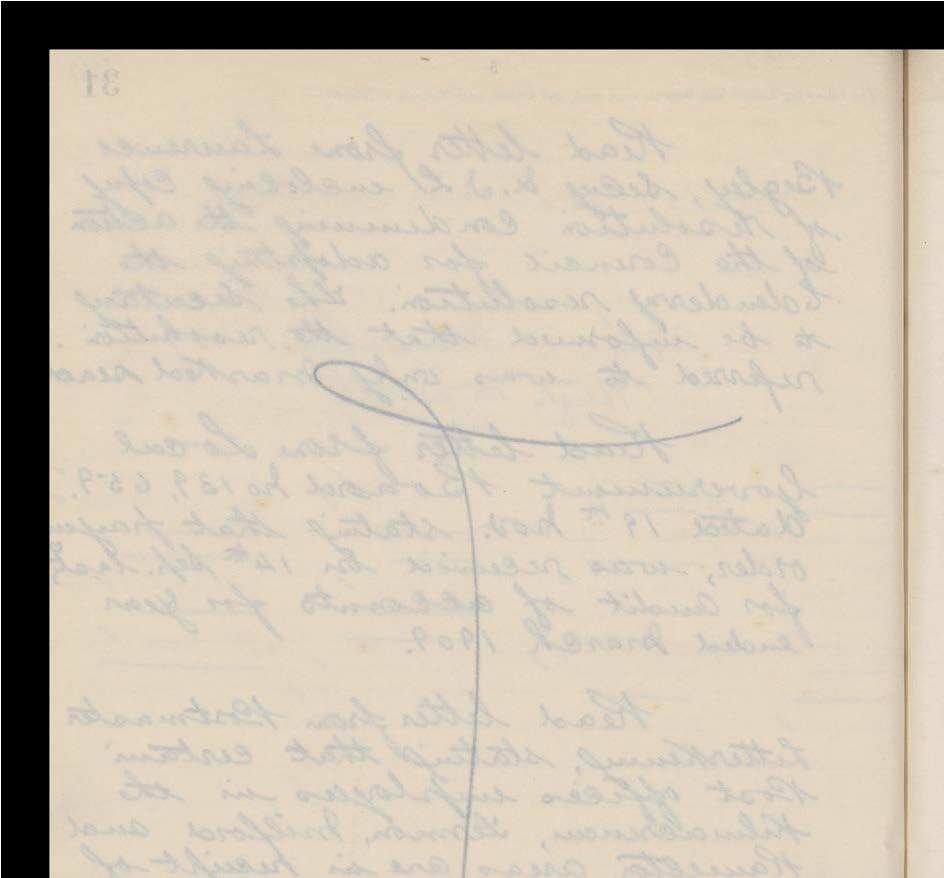 31
Read letter from Lawrence
Begley, Secy U.I.L enclosing copy
of resolution condemning the action
of the Council for adopting the
resolution. The Secretary
to be informed that the resolution.
referred to was only marked read
Read letter from Local
Government Board No 139,659
dated 19th Nov. stating that
order, was received on 14th Sep. last,
for audit of accounts for year
ended March 1909.
Read letter from Postmaster
Letterkenny, stating that certain
Post offices employees in the
Kilmacrenan, Termon, Milford and
Ramelton areas are in receipt of